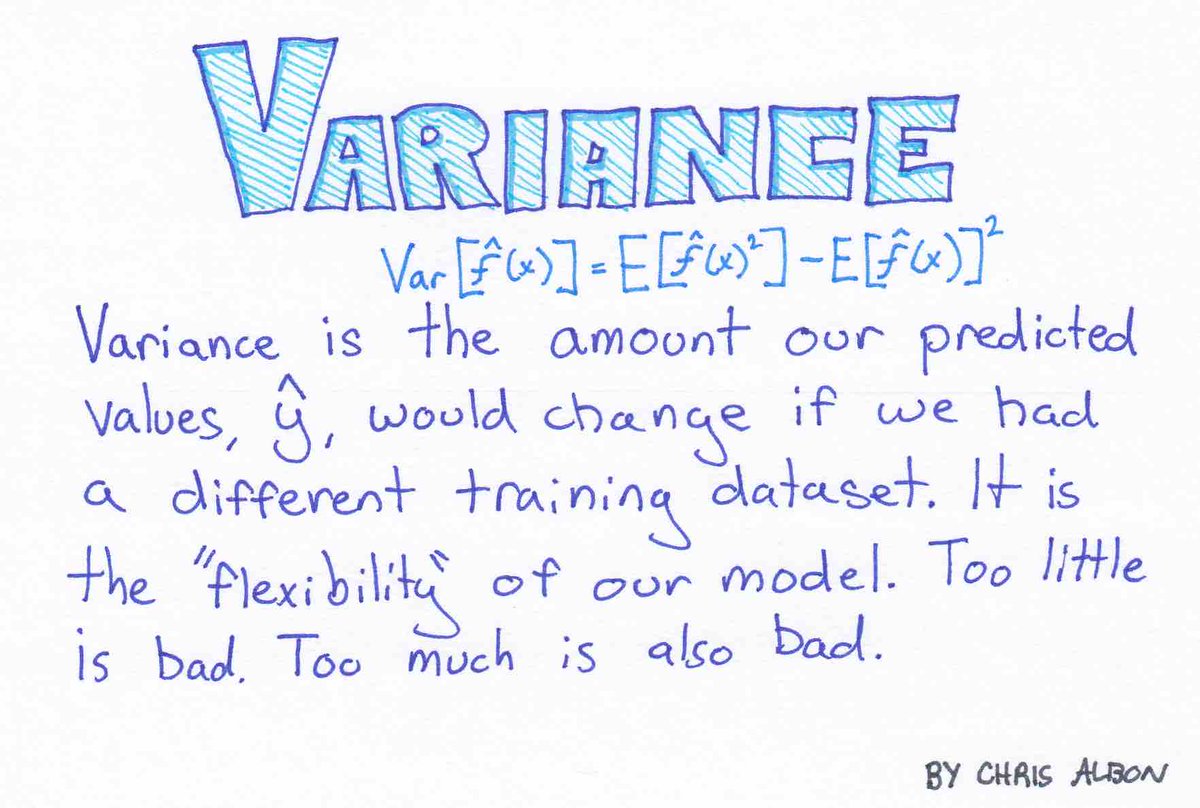 VARIANCE
Var[f̂(x)] = E[f̂(x)²] - E[f̂(x)]²
Variance is the amount our predicted
values, ŷ, would change if we had
a different training dataset. It is
the "flexibility" of our model. Too little
is bad. Too much is also bad.
BY CHRIS ALBON